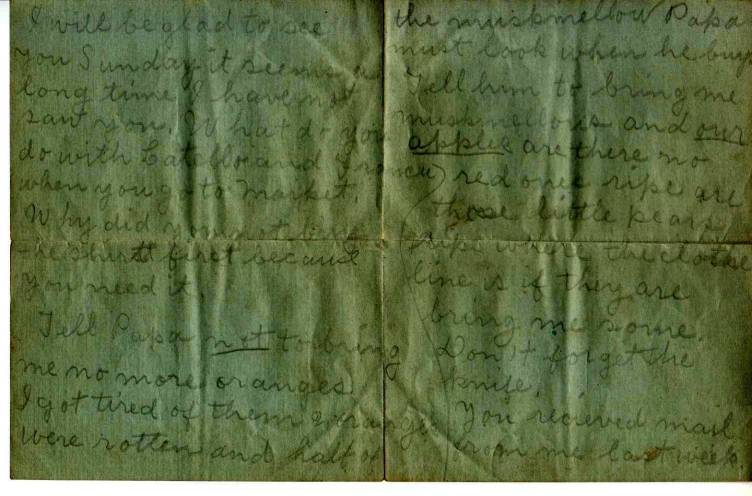 I will be glad to see
you Sunday it seems a
long time I have not
saw you. What do you
do with Catello and
when you go to market.
Why did you not
the shirtt first because
you need it.
Tell Papa not to bring
me no more oranges
I got tired of them 2 oranges
were rotten and half of
the muskmellow Papa
must look when he buys
Tell him to bring me
muskmellows and our
apples are there no
red ones ripe are
those little pears
ripe where the clothe
line is if they are
bring me some.
Don't forget the
knife.
You recieved mail
from me last week